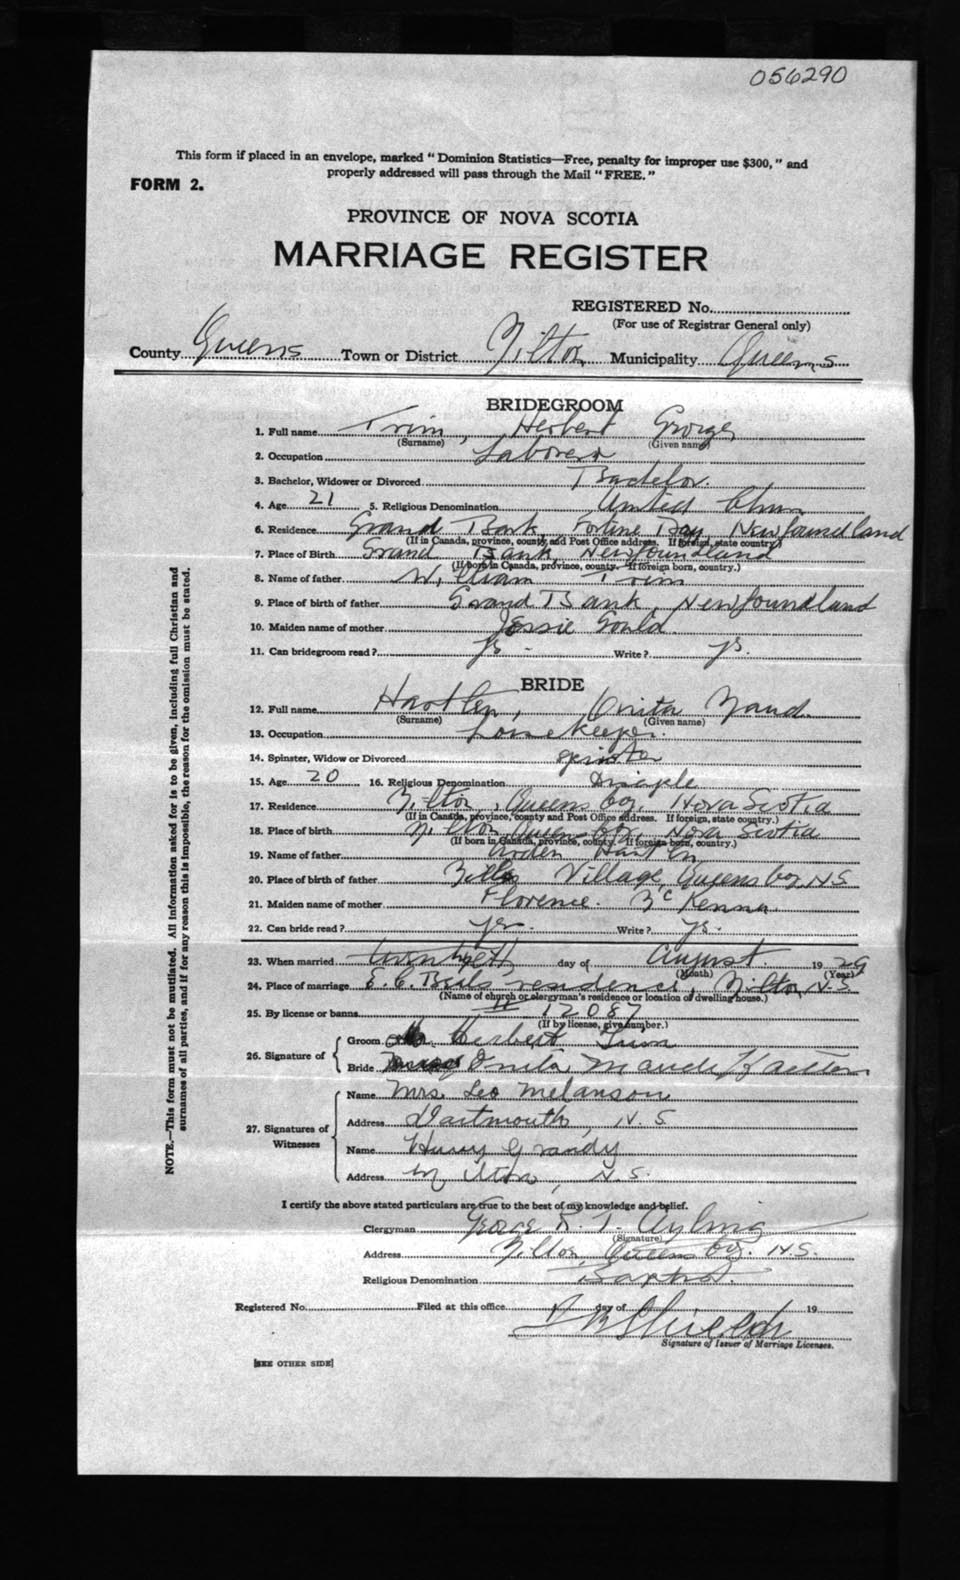 056290
This form if placed in an envelope, marked "Dominion Statistics—Free, penalty for improper use $300," and
properly addressed will pass through the Mail "FREE."
FORM 2.
PROVINCE OF NOVA SCOTIA
MARRIAGE REGISTER
REGISTERED No.
(For use of Registrar General only)
County Queens Town or District Milton Municipality Queens
BRIDEGROOM
1. Full name Trim, Herbert George
(Surname) (Given name)
2. Occupation Laborer
3. Bachelor, Widower or Divorced Bachelor.
4. Age 21 5. Religious Denomination United Chur
6. Residence Grand Bank, Fortune Bay, Newfoundland
(If in Canada, province, county, and Post Office address. If foreign, state country.)
7. Place of Birth Grand Bank, Newfoundland
(If born in Canada, province, county. If foreign born, country.)
8. Name of father William Trim
9. Place of birth of father Grand Bank, Newfoundland
10. Maiden name of mother Jessie Gould.
11. Can bridegroom read? ys. Write? ys.
BRIDE
12. Full name Hartlen, Onita Maud.
(Surname) (Given name)
13. Occupation housekeeper.
14. Spinster, Widow or Divorced spinster
15. Age 20 16. Religious Denomination Disciple
17. Residence Milton, Queens Co., Nova Scotia
(If in Canada, province, county and Post Office address. If foreign, state country.)
18. Place of birth Milton, Queens Co., Nova Scotia
(If born in Canada, province, county. If foreign born, country.)
19. Name of father Arden Hartlen
20. Place of birth of father Mills Village, Queens Co, N.S
21. Maiden name of mother Florence. McKenna.
22. Can bride read? ys. Write? ys.
23. When married twentyeth day of August. 1929
(Month) (Year)
24. Place of marriage E. C. Beals residence, Milton, N.S.
(Name of church or clergyman's residence or location of dwelling house.)
25. By license or banns 12087
(If by license, give number.)
26. Signature of Groom Herbert Trim
Bride Onita Maude Hartlen
27. Signatures of Witnesses
Name Mrs. Leo Melanson
Address Dartmouth, N.S
Name Harry Grandy
Address Milton, N.S.
I certify the above stated particulars are true to the best of my knowledge and belief.
Clergyman George R. T. Ayling
(Signature)
Address Milton, Queens Co. N.S.
Religious Denomination Baptist.
Registered No. Filed at this office day of 19
Signature of Issuer of Marriage Licenses.
[SEE OTHER SIDE]
NOTE.—This form must not be mutilated. All information asked for is to be given, including full Christian and
surnames of all parties, and if for any reason this is impossible, the reason for the omission must be stated.